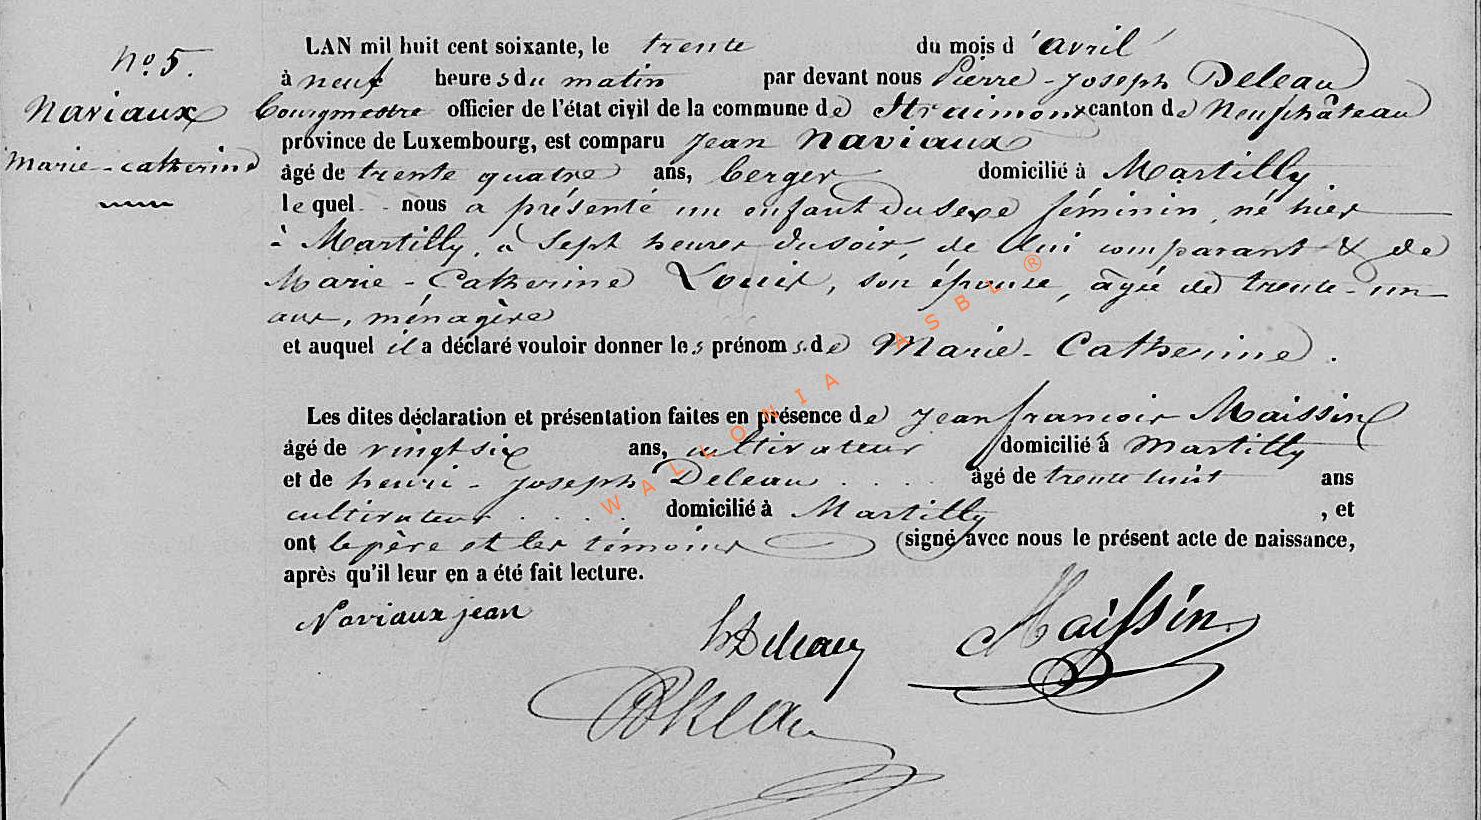 no. 5.
Naviaux
Marie-catherine
LAN mil huit cent soixante, le trente du mois d'avril
à neuf heures du matin par devant nous Pierre-Joseph Deleau
bourgmestre officier de l'état civil de la commune de Straimont canton de Neufchâteau
province de Luxembourg, est comparu Jean Naviaux
âgé de trente quatre ans, berger domicilié à Martilly
lequel nous a présenté un enfant du sexe féminin, né hier
à Martilly, à sept heures du soir, de lui comparant & de
Marie-Catherine Louis, son épouse, âgée de trente-un
ans, ménagère
et auquel il a déclaré vouloir donner les prénoms de Marie-Catherine.
Les dites déclaration et présentation faites en présence de Jean françois Maissin
âgé de vingt six ans, cultivateur domicilié à Martilly
et de henri-Joseph Deleau .... âgé de trente huit ans
cultivateur ..... domicilié à Martilly, et
ont le père et les témoins signé avec nous le présent acte de naissance,
après qu'il leur en a été fait lecture.
Naviaux jean
hDeleau
Maissin
PJDeleau
WALLONIA ASBL ®